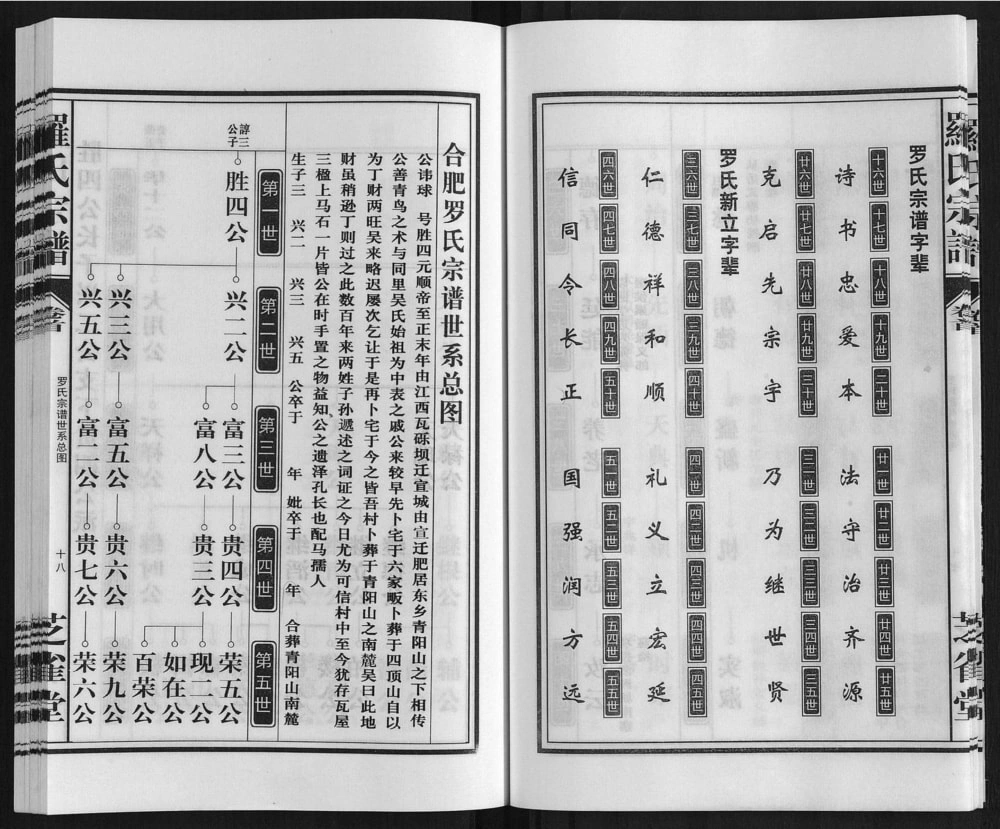 罗氏宗谱字辈
十六世 十七世 十八世 十九世 二十世 廿一世 廿二世 廿三世 廿四世 廿五世
诗书忠爱本 法守治齐源
廿六世 廿七世 廿八世 廿九世 三十世 三一世 三二世 三三世 三四世 三五世
克启先宗宇 乃为继世贤
罗氏新立字辈
三六世 三七世 三八世 三九世 四十世 四一世 四二世 四三世 四四世 四五世
仁德祥和顺 礼义立宏延
四六世 四七世 四八世 四九世 五十世 五一世 五二世 五三世 五四世 五五世
信同令长正 国强润方远
羅氏宗譜
卷首
合肥罗氏宗谱世系总图
公讳球 号胜四元顺帝至正末年由江西瓦砾坝迁宣城由宣迁肥居东乡青阳山之下相传
公善青鸟之术与同里吴氏始祖为中表之戚公来较早先卜宅于六家畈卜葬于四顶山自以
为丁财两旺吴来略迟屡次乞让于是再卜宅于今之皆吾村卜葬于青阳山之南麓吴曰此地
财虽稍逊丁则过之此数百年来两姓子孙递述之词证之今日尤为可信村中至今犹存瓦屋
三楹上马石一片皆公在时手置之物益知公之遗泽孔长也配马孺人
生子三 兴二 兴三 兴五 公卒于 年 妣卒于 年 合葬青阳山南麓
第一世 第二世 第三世 第四世 第五世
諄三公子
胜四公 兴二公 富三公 贵四公 荣五公
现二公
富八公 贵三公 如在公
百荣公
兴三公 富五公 贵六公 荣九公
兴五公 富二公 贵七公 荣六公
羅氏宗譜
卷首
罗氏宗谱世系总图
十八